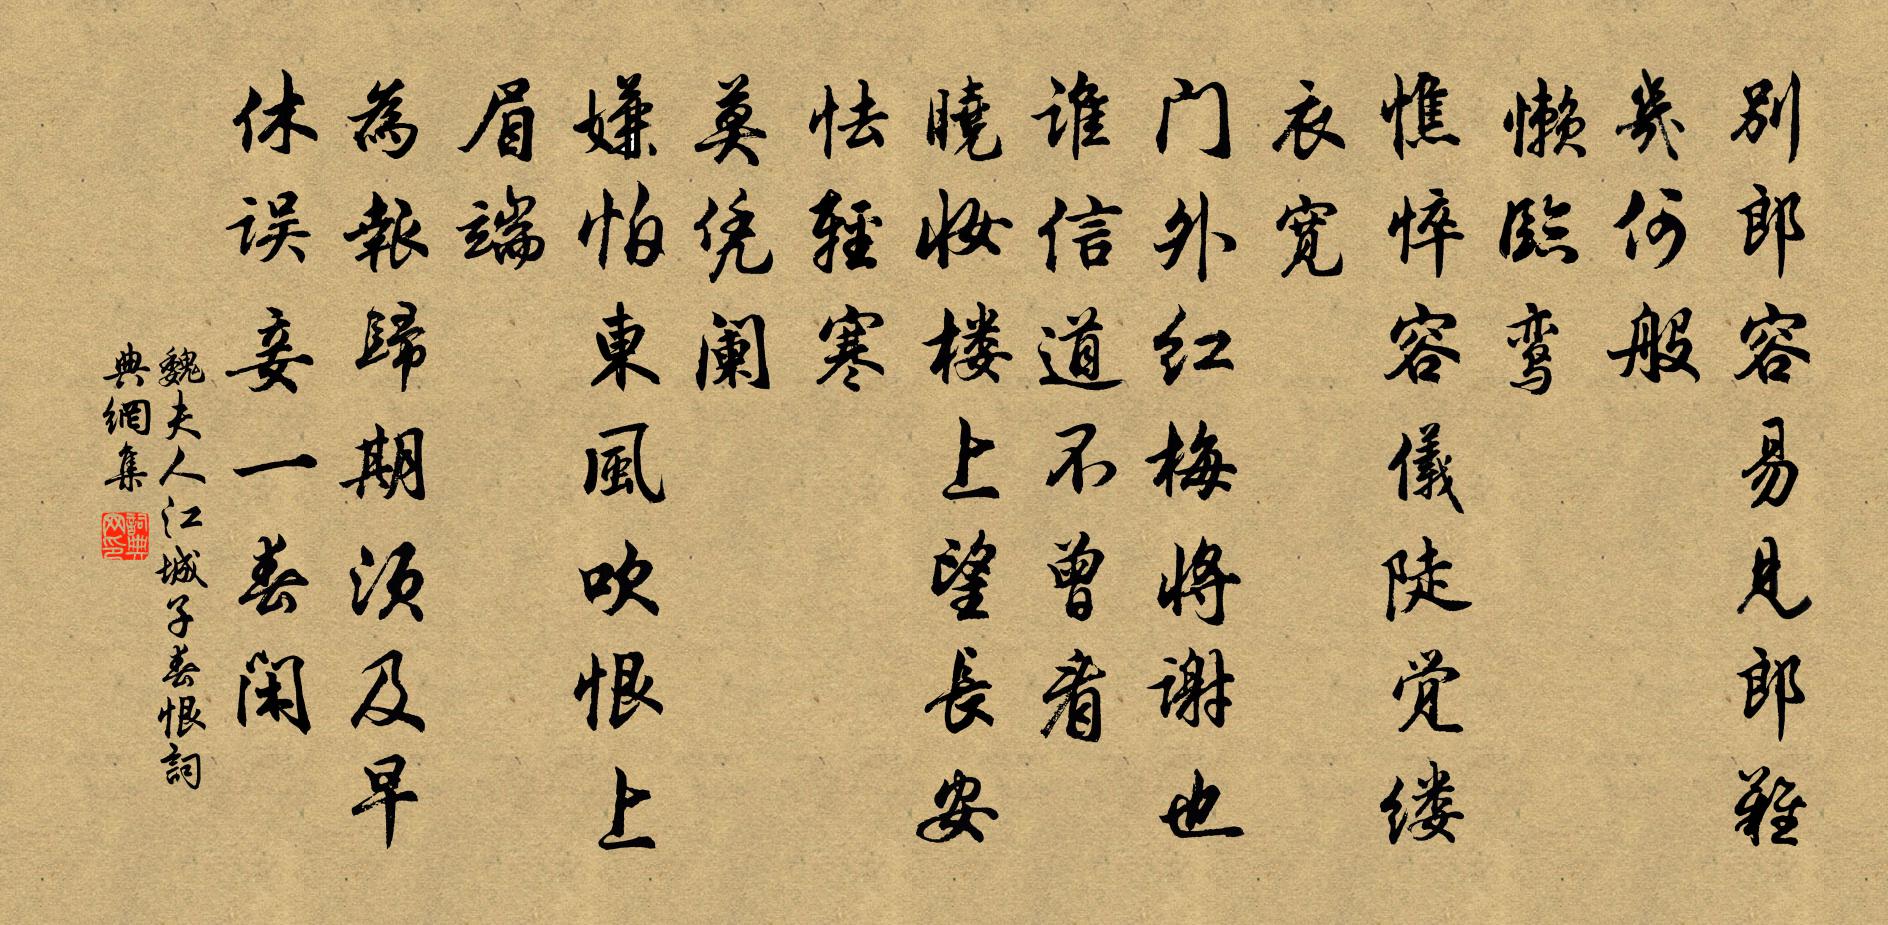 别郎容易见郎难
幾何般
懒臨鸾
憔悴容儀陡觉缕
衣寛
门外红梅将谢也
谁信道不曾看
曉妆楼上望長安
怯輕寒
莫凭阑
嫌怕東風吹恨上
眉端
為報歸期须及早
休误妾一春闲
魏夫人江城子春恨詞
典網集
詞典
网印